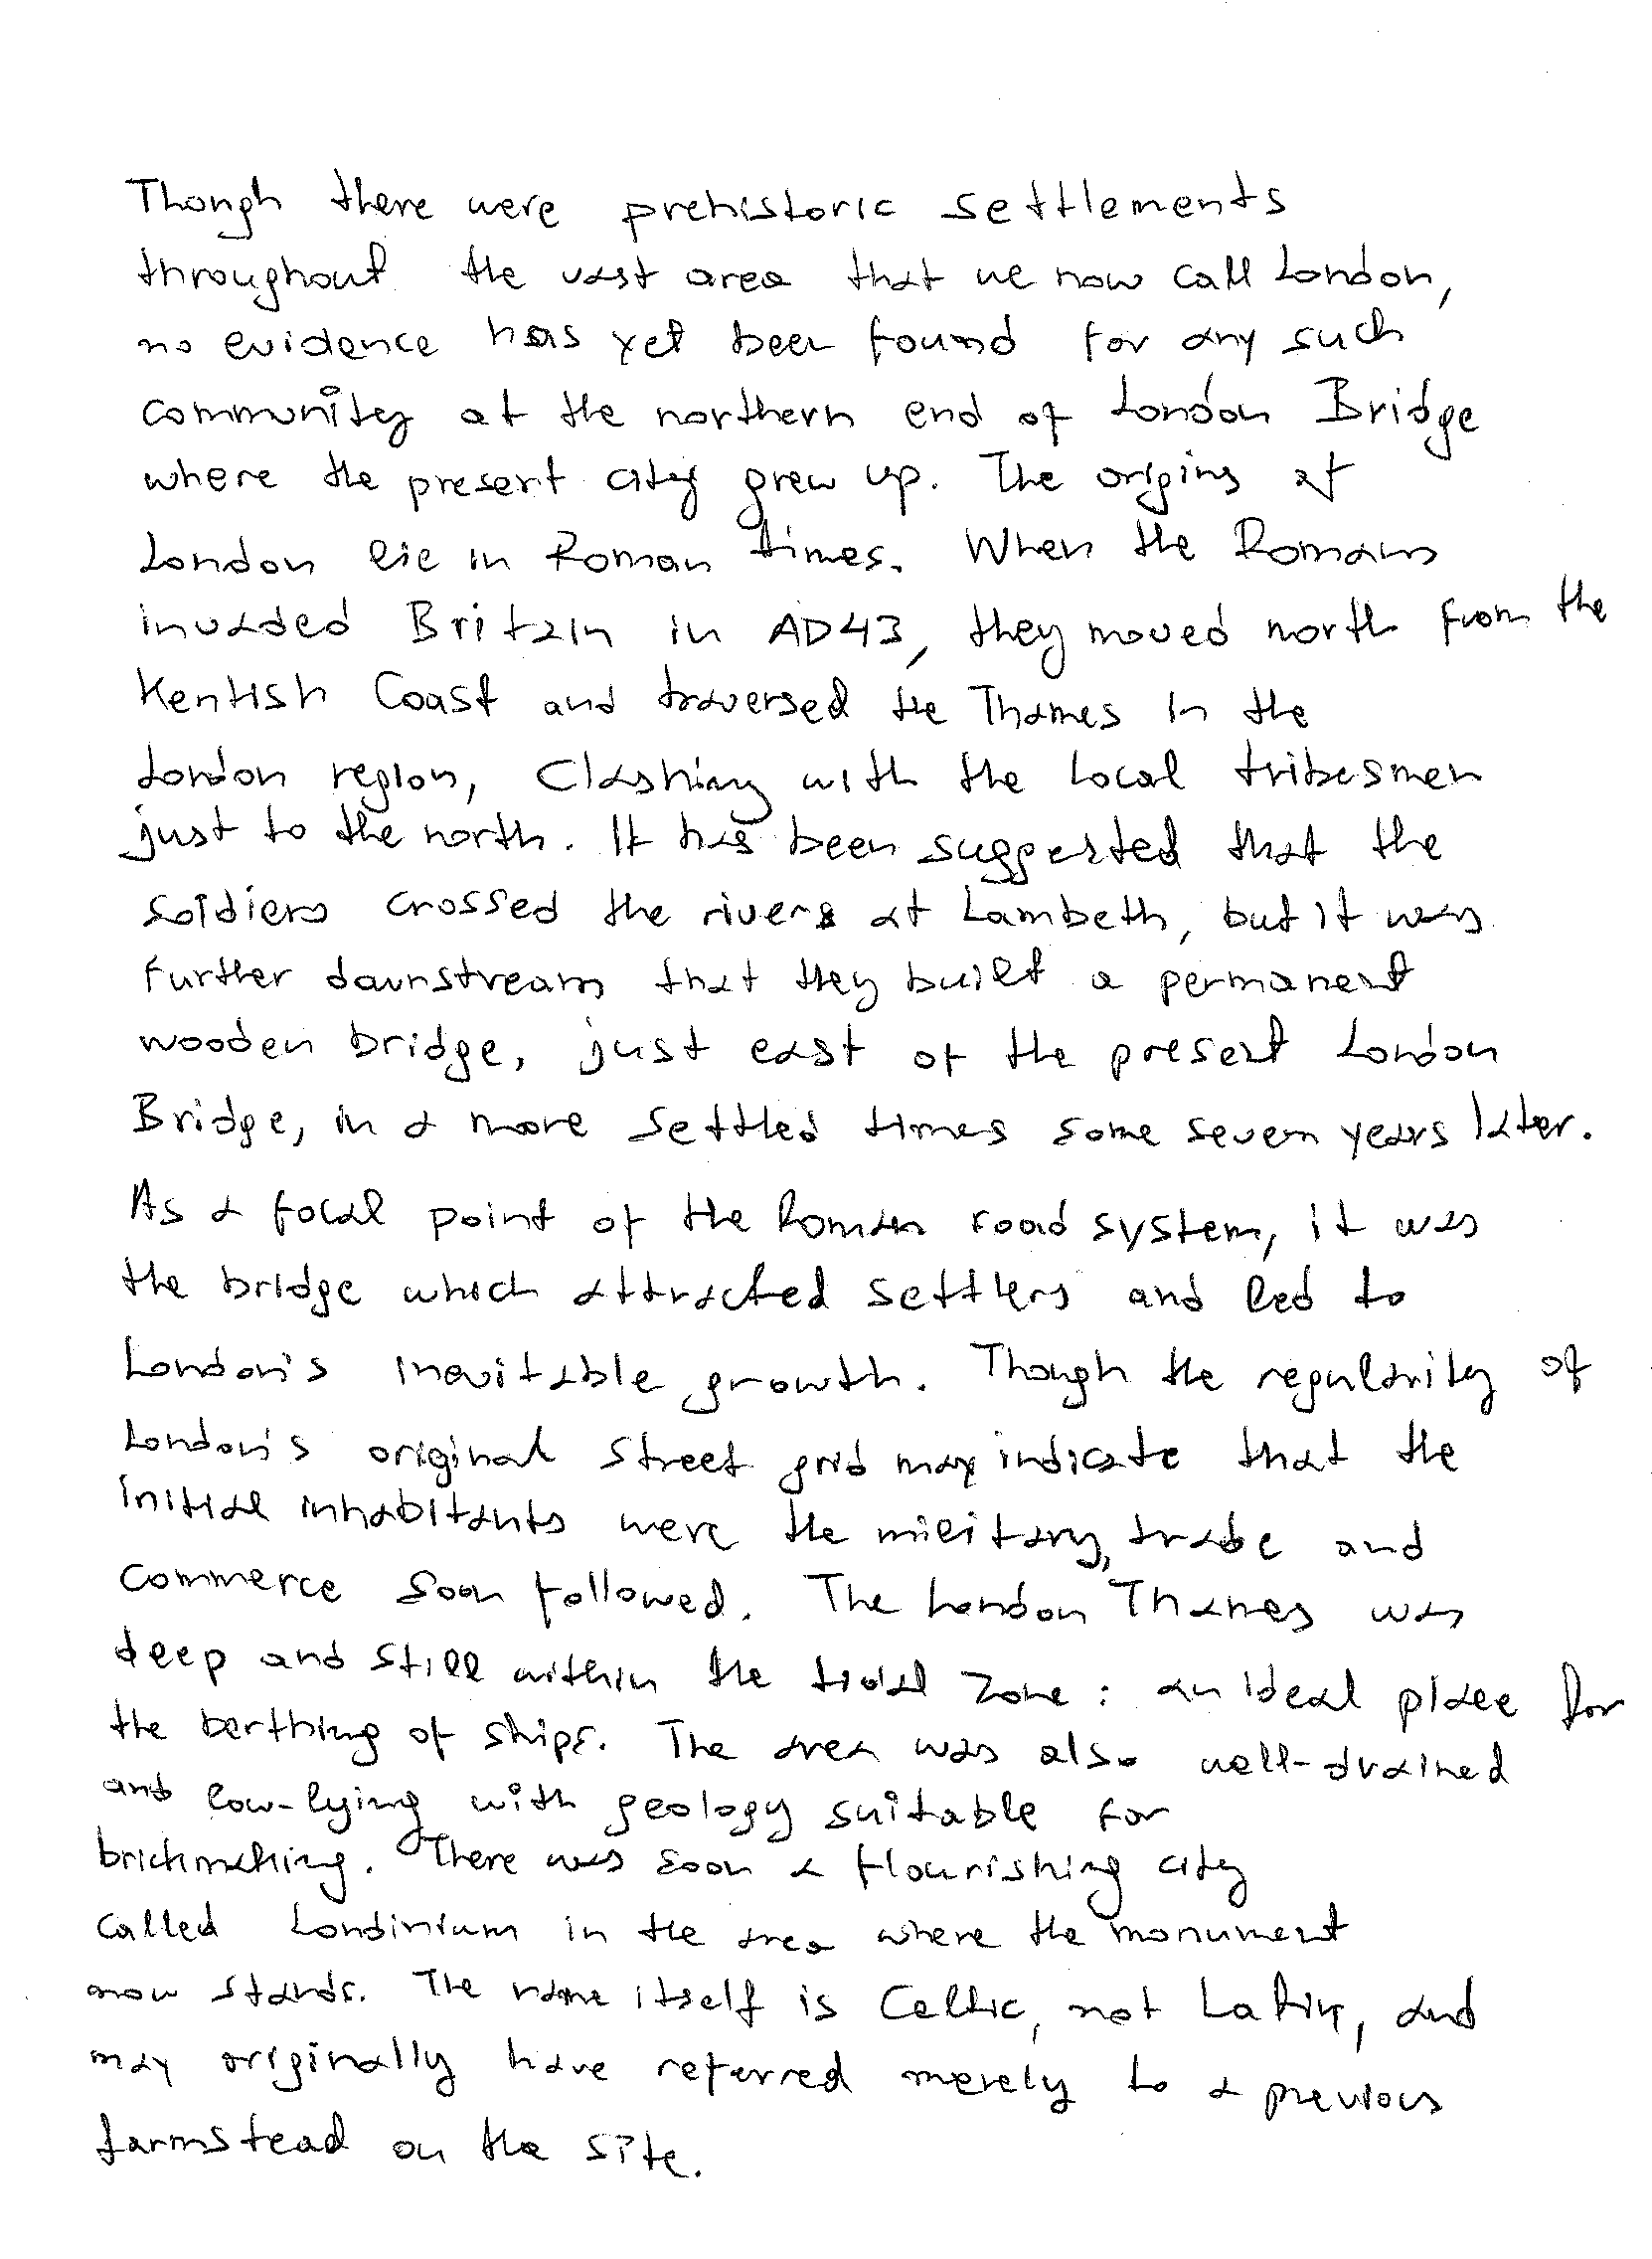 Though there were prehistoric settlements
throughout the vast area that we now call London,
no evidence has yet been found for any such
community at the northern end of London Bridge
where the present city grew up. The origins of
London lie in Roman times. When the Romans
invaded Britain in AD43, they moved north from the
Kentish Coast and traversed the Thames in the
London region, Clashing with the local tribesmen
just to the north. It has been suggested that the
soldiers crossed the rivers at Lambeth, but it was
further downstream that they built a permanent
wooden bridge, just east of the present London
Bridge, in a more settled times some seven years later.
As a focal point of the Roman road system, it was
the bridge which attracted settlers and led to
London's inevitable growth. Though the regularity of
London's original street grid may indicate that the
initial inhabitants were the military, trade and
commerce soon followed. The London Thames was
deep and still within the tidal zone: an ideal place for
the berthing of ships. The area was also well-drained
and low-lying with geology suitable for
brickmaking. There was soon a flourishing city
called Londinium in the area where the monument
now stands. The name itself is Celtic, not Latin, and
may originally have referred merely to a previous
farmstead on the site.